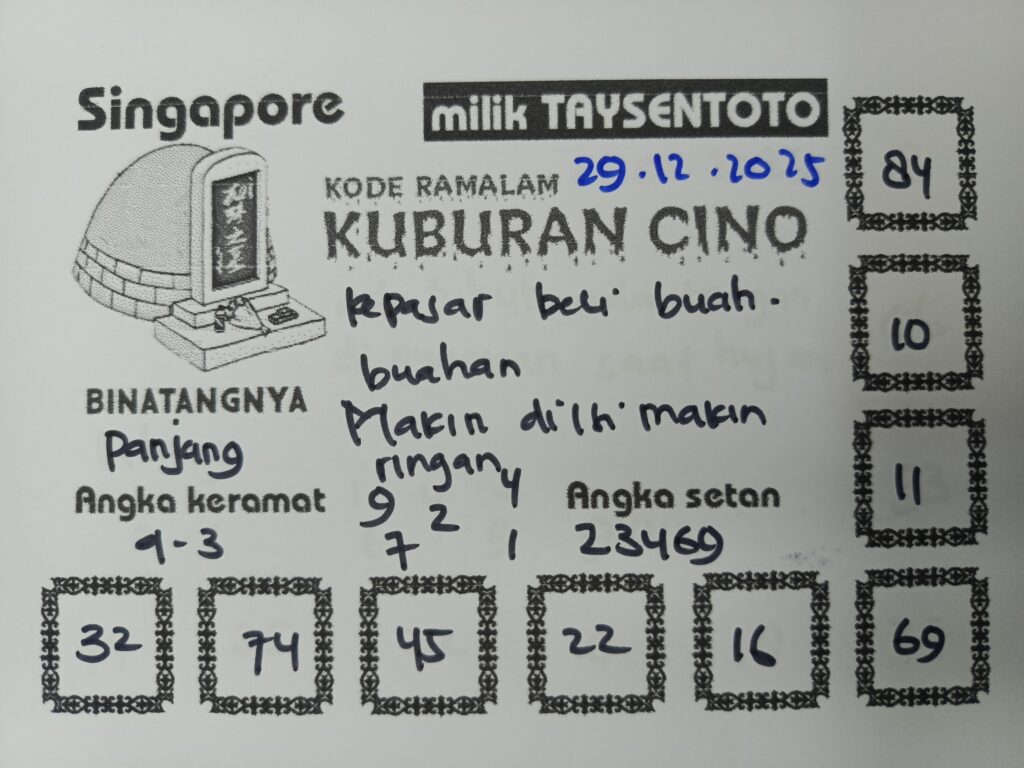 Singapore
milik TAYSENTOTO
29.12.2025
KODE RAMALAM
KUBURAN CINO
kepasar beli buah.
buahan
Makin dilhi makin
ringan
BINATANGNYA
Panjang
Angka keramat
9-3
9 4
2
7 1
Angka setan
23469
84
10
11
69
32 74 45 22 16